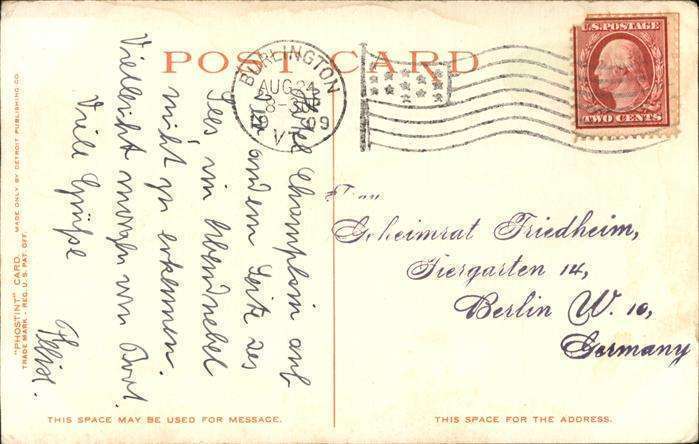 POST CARD
BURLINGTON
AUG 24
8-30 P
1909
VT.
U.S. POSTAGE
TWO CENTS
Hotel Champlain auf
der andern Seite des
Sees im Abendnebel
nicht zu erkennen.
Vielleicht morgen von Dort.
Viele Grüße
Frau
Geheimrat Friedheim,
Tiergarten 14,
Berlin W. 10,
Germany
"PHOSTINT" CARD. MADE ONLY BY DETROIT PUBLISHING CO.
TRADE MARK - REG. U.S. PAT. OFF.
THIS SPACE MAY BE USED FOR MESSAGE.
THIS SPACE FOR THE ADDRESS.